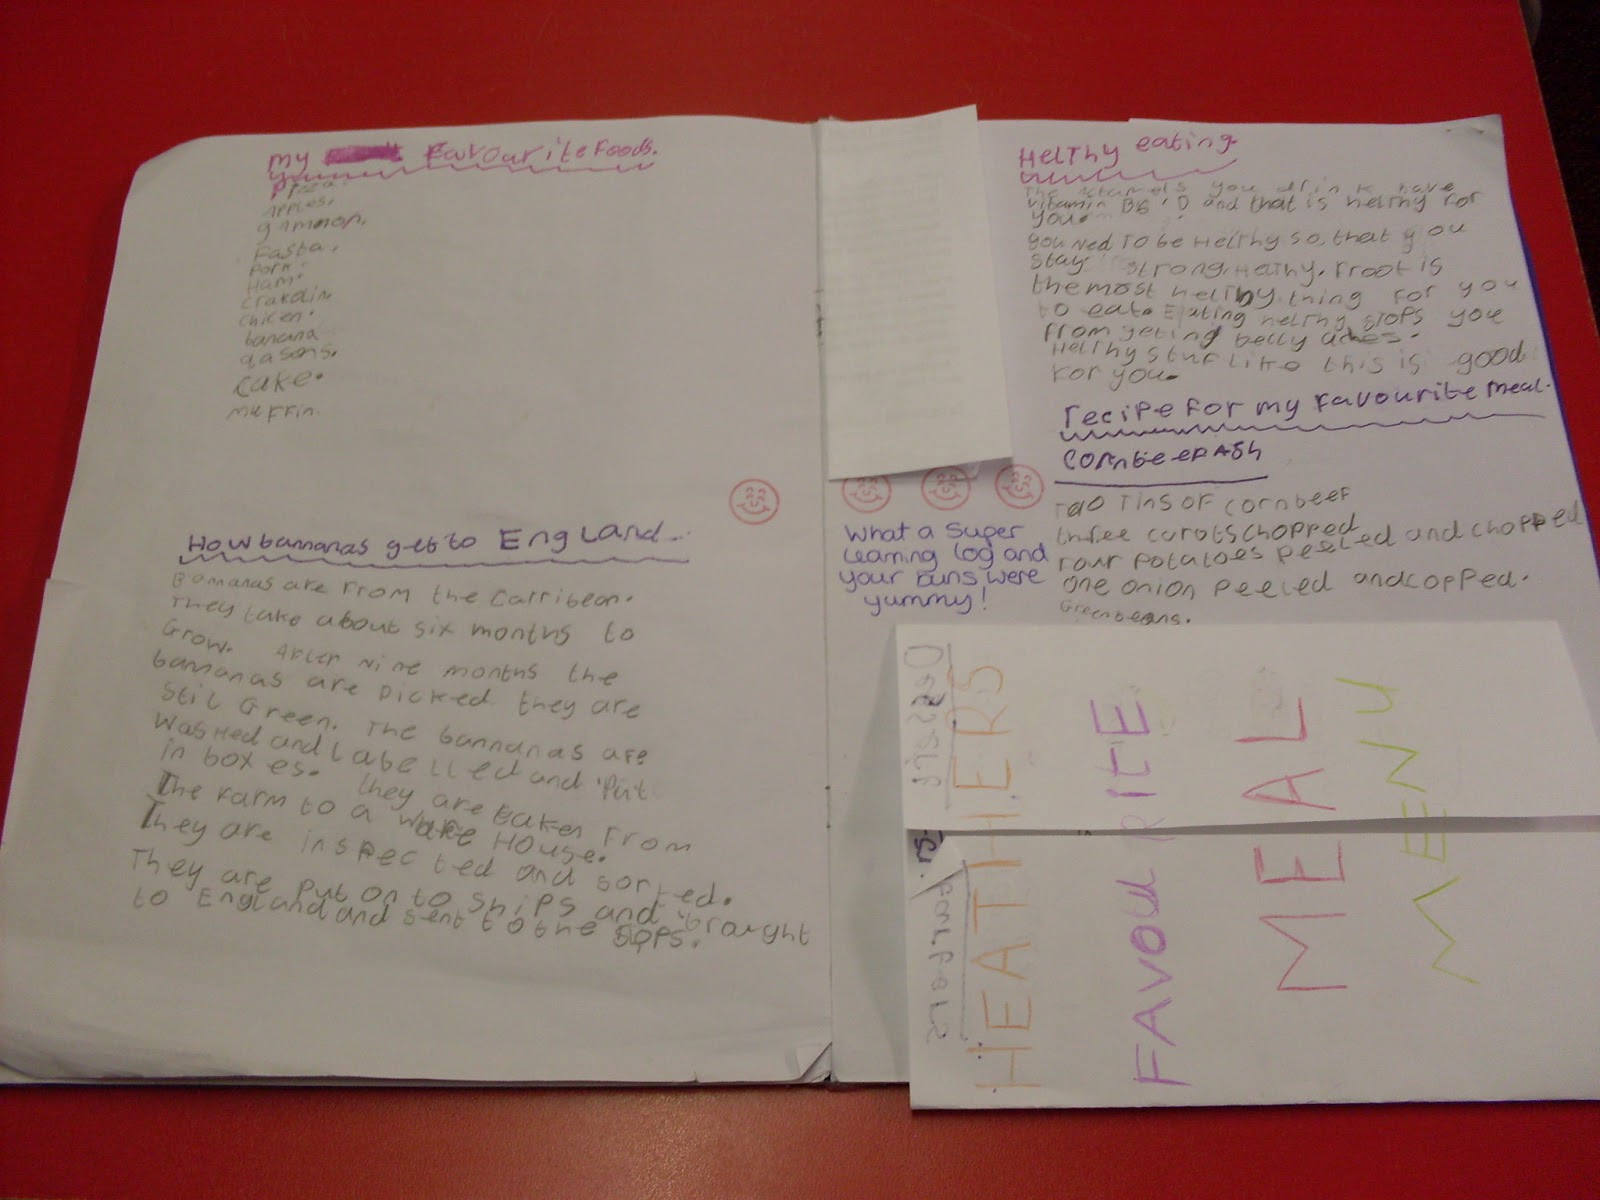 My Favourite Foods.
Pizza.
Apples.
gammon.
Pasta.
Pork.
Ham.
Crakalin.
chicen.
banana
gasons.
cake.
Muffin.
How bannanas get to England...
Bannanas are from the Carribean.
They take about six months to
Grow. After Nine months the
bannanas are picked they are
Still Green. The bannanas are
Washed and labelled and Put
in boxes. they are taken From
The farm to a Ware House.
They are inspected and sorted.
They are Put on to Ships and braught
to England and sent to the Sops.
Helthy eating.
The Actamels you drink have
vitamin B6 D and that is helthy for
you.
you Ned To be Helthy so, that you
Stay Strong, Helthy. Froot is
the most helthy thing for you
to eat. Eating helthy stops you
from geting belly aches.
Helthy stuf like this is good
for you.
recipe for my favourite meal.
Cornbeef Ash
Two Tins of cornbeef
three carots chopped
Four potatoes peeled and chopped
one onion peeled and copped.
Green beans.
What a super
learning log and
your buns were
yummy!
HEATHERS
FAVOURITE
MEAL
MENU